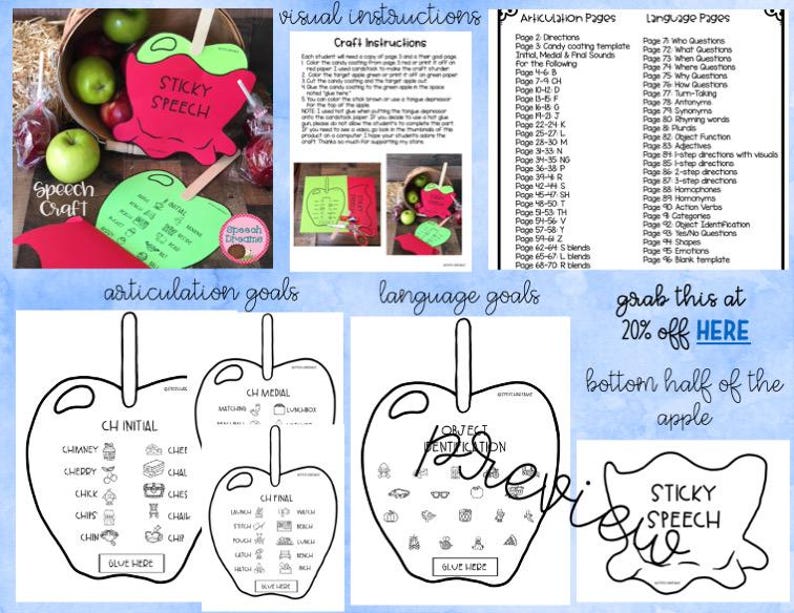 visual instructions
Craft Instructions
Each student will need a copy of page 3 and a their goal page.
1. Color the candy coating from page 3 red or print it off on
red paper. I used cardstock to make the craft sturdier.
2. Color the target apple green or print it off on green paper.
3. Cut the candy coating and the target apple out.
4. Glue the candy coating to the green apple in the space
noted "glue here."
5. You can color the stick brown or use a tongue depressor
for the top of the apple.
NOTE: I used hot glue when putting the tongue depressor
onto the cardstock paper. If you decide to use a hot glue
gun, please do not allow the students to complete this part.
If you need to see a video, go look in the thumbnails of this
product on a computer. I hope your students adore the
craft. Thanks so much for supporting my store.
Articulation Pages
Page 2: Directions
Page 3: Candy coating template
Initial, Medial & Final Sounds
for the Following
Page 4-6: B
Page 7-9: CH
Page 10-12: D
Page 13-15: F
Page 16-18: G
Page 19-21: J
Page 22-24: K
Page 25-27: L
Page 28-30: M
Page 31-33: N
Page 34-35: NG
Page 36-38: P
Page 39-41: R
Page 42-44: S
Page 45-47: SH
Page 48-50: T
Page 51-53: TH
Page 54-56: V
Page 57-58: Y
Page 59-61: Z
Page 62-64: S blends
Page 65-67: L blends
Page 68-70: R blends
Language Pages
Page 71: Who Questions
Page 72: What Questions
Page 73: When Questions
Page 74: Where Questions
Page 75: Why Questions
Page 76: How Questions
Page 77: Turn-Taking
Page 78: Antonyms
Page 79: Synonyms
Page 80: Rhyming words
Page 81: Plurals
Page 82: Object Function
Page 83: Adjectives
Page 84: 1-step directions with visuals
Page 85: 1-step directions
Page 86: 2-step directions
Page 87: 3-step directions
Page 88: Homophones
Page 89: Homonyms
Page 90: Action Verbs
Page 91: Categories
Page 92: Object Identification
Page 93: Yes/No Questions
Page 94: Shapes
Page 95: Emotions
Page 96: Blank template
STICKY
SPEECH
Speech
Craft
INITIAL
Speech
Dreams
articulation goals
language goals
grab this at
20% off HERE
bottom half of the
apple
CH INITIAL
CHIMNEY
CHERRY
CHICK
CHIPS
CHIN
CHEE
CHAL
CHES
CHAIR
CHIP
GLUE HERE
CH MEDIAL
MATCHING
LUNCHBOX
CH FINAL
LAUNCH WATCH
STITCH BEACH
POUCH LUNCH
CATCH BENCH
HATCH INCH
GLUE HERE
OBJECT
IDENTIFICATION
GLUE HERE
preview
STICKY
SPEECH